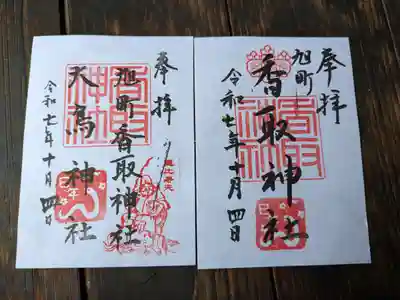 奉拝
旭町香取神社
天高神社
令和七年十月四日
巳年
奉拝
旭町
香取神社
令和七年十月四日
香取神社